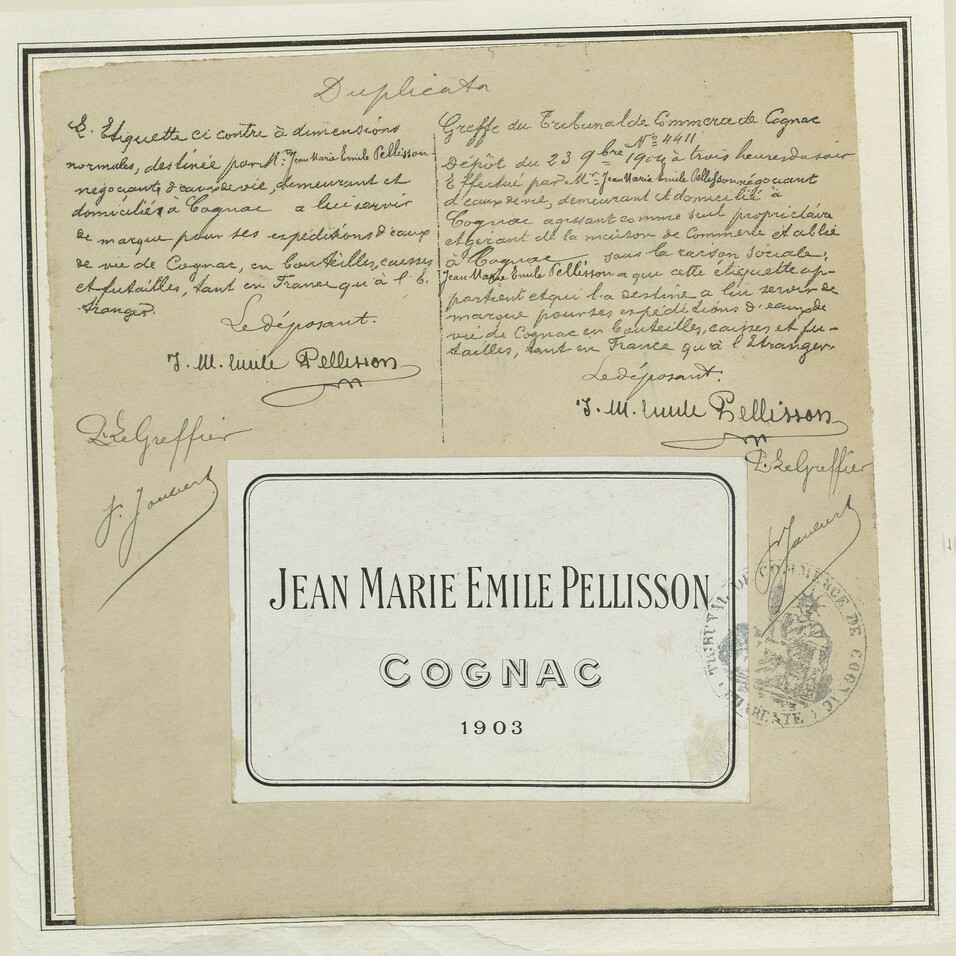 Duplicata
E. Etiquette ci contre à dimensions
normales, destinée par Mr. Jean Marie Emile Pellisson
négociant, d'eaux de vie, demeurant et
domiciliés à Cognac a lui servir
de marque pour ses expéditions d'eaux
de vie de Cognac, en bouteilles, caisses
et futailles, tant en France qu'à l'E.
tranger.
Le déposant.
J. M. Emile Pellisson
P. Le Greffier
J. Jouvert
Greffe du Tribunal de Commerce de Cognac
No 4411
Dépôt du 23 9bre 1904 à trois heures du soir
Effectué par Mr. Jean Marie Emile Pellisson négociant
d'eaux de vie, demeurant et domicilié à
Cognac agissant comme seul propriétaire
et gérant de la maison de Commerce établie
à Cognac sous la raison sociale;
Jean Marie Emile Pellisson a qui cette étiquette ap-
partient et qui l'a destine a lui servir de
marque pour ses expéditions d'eaux de
vie de Cognac en bouteilles, caisses et fu-
tailles, tant en France qu'à l'Etranger.
Le déposant.
J. M. Emile Pellisson
P. Le Greffier
J. Jouvert
JEAN MARIE EMILE PELLISSON
COGNAC
1903
TRIBUNAL DE COMMERCE DE COGNAC
CHARENTE